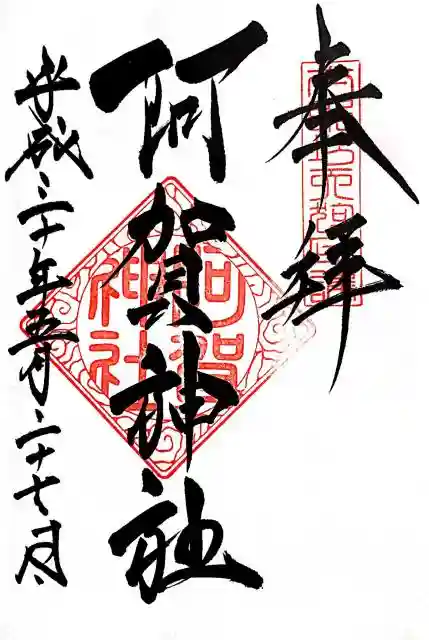 奉拝
阿賀神社
阿賀
神社
平成三十年五月二十七日